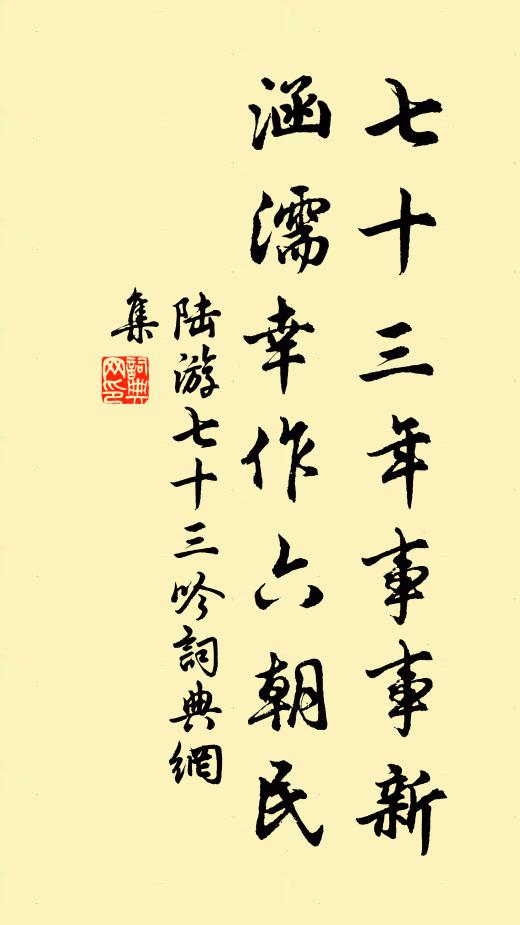 七十三年事事新
涵濡幸作六朝民
陆游七十三吟詞典網
集
詞典
网印